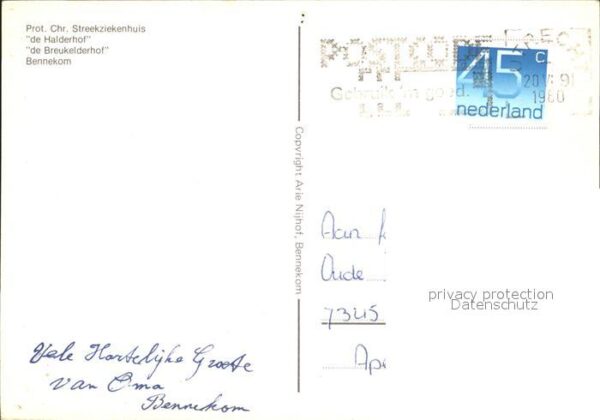 Prot. Chr. Streekziekenhuis
"de Halderhof"
"de Breukelderhof"
Bennekom
POSTCODE
Gebruik 'm goed.
20 VI 9
1980
45 c
nederland
Copyright Arie Nijhof, Bennekom
Aan
Oude
7345
Ape
privacy protection
Datenschutz
Vele Hartelijke Groete
van Oma
Bennekom